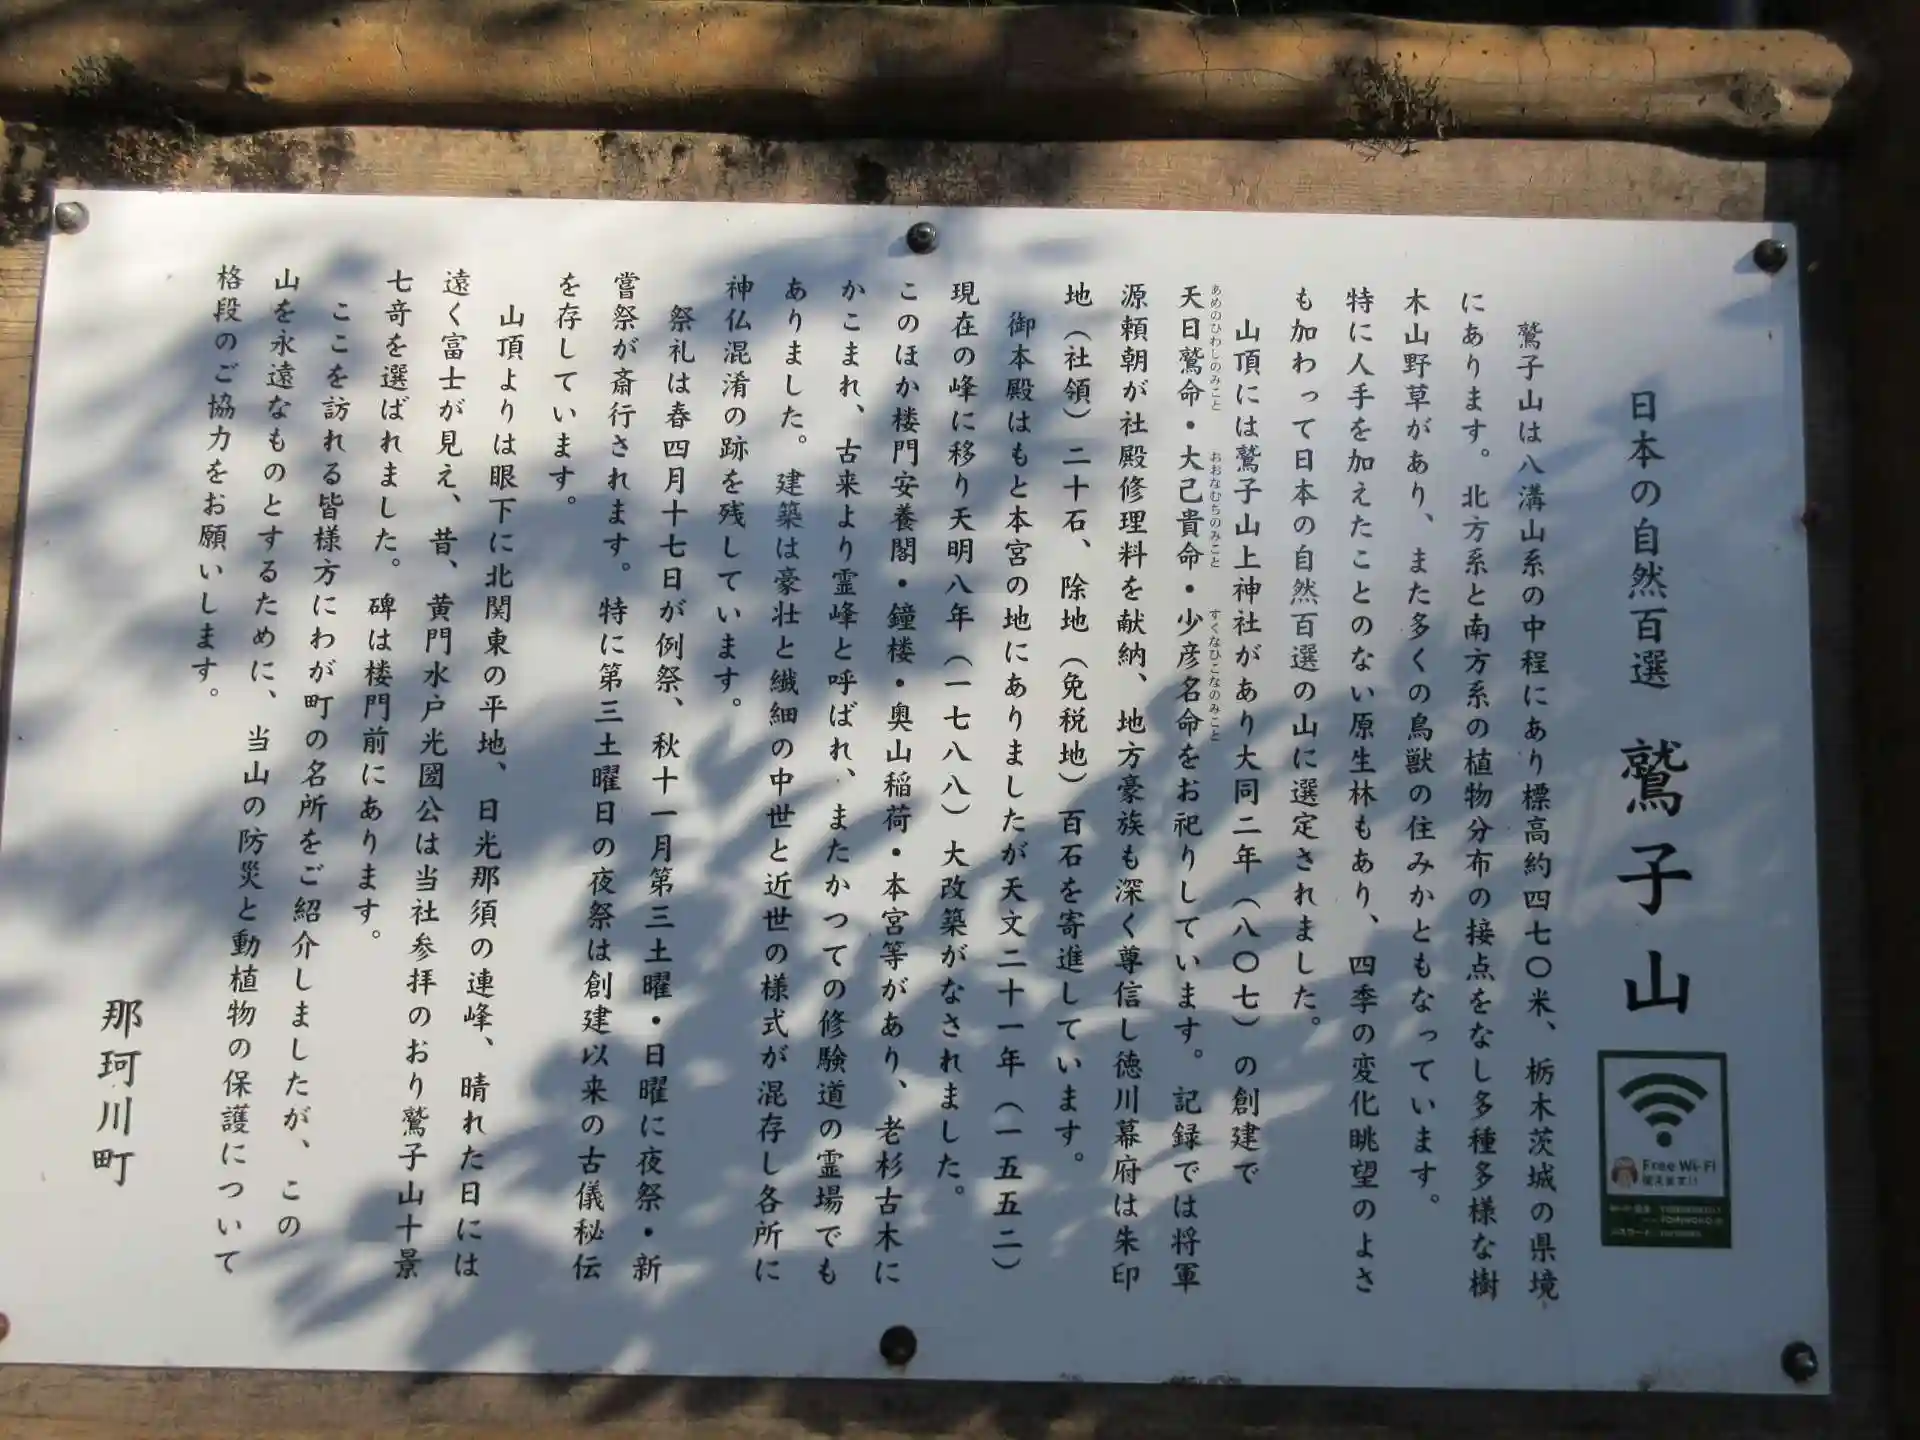 日本の自然百選 鷲子山
鷲子山は八溝山系の中程にあり標高約四七〇米、栃木茨城の県境
にあります。北方系と南方系の植物分布の接点をなし多種多様な樹
木山野草があり、また多くの鳥獣の住みかともなっています。
特に人手を加えたことのない原生林もあり、四季の変化眺望のよさ
も加わって日本の自然百選の山に選定されました。
山頂には鷲子山上神社があり大同二年（八〇七）の創建で
あめのひわしのみこと おおなむちのみこと すくなひこなのみこと
天日鷲命・大己貴命・少彦名命をお祀りしています。記録では将軍
源頼朝が社殿修理料を献納、地方豪族も深く尊信し徳川幕府は朱印
地（社領）二十石、除地（免税地）百石を寄進しています。
御本殿はもと本宮の地にありましたが天文二十一年（一五五二）
現在の峰に移り天明八年（一七八八）大改築がなされました。
このほか楼門安養閣・鐘楼・奥山稲荷・本宮等があり、老杉古木に
かこまれ、古来より霊峰と呼ばれ、またかつての修験道の霊場でも
ありました。建築は豪壮と繊細の中世と近世の様式が混存し各所に
神仏混淆の跡を残しています。
祭礼は春四月十七日が例祭、秋十一月第三土曜・日曜に夜祭・新
嘗祭が斎行されます。特に第三土曜日の夜祭は創建以来の古儀秘伝
を存しています。
山頂よりは眼下に北関東の平地、日光那須の連峰、晴れた日には
遠く富士が見え、昔、黄門水戸光圀公は当社参拝のおり鷲子山十景
七竒を選ばれました。碑は楼門前にあります。
ここを訪れる皆様方にわが町の名所をご紹介しましたが、この
山を永遠なものとするために、当山の防災と動植物の保護について
格段のご協力をお願いします。
那珂川町
Free Wi-Fi
使えます!!